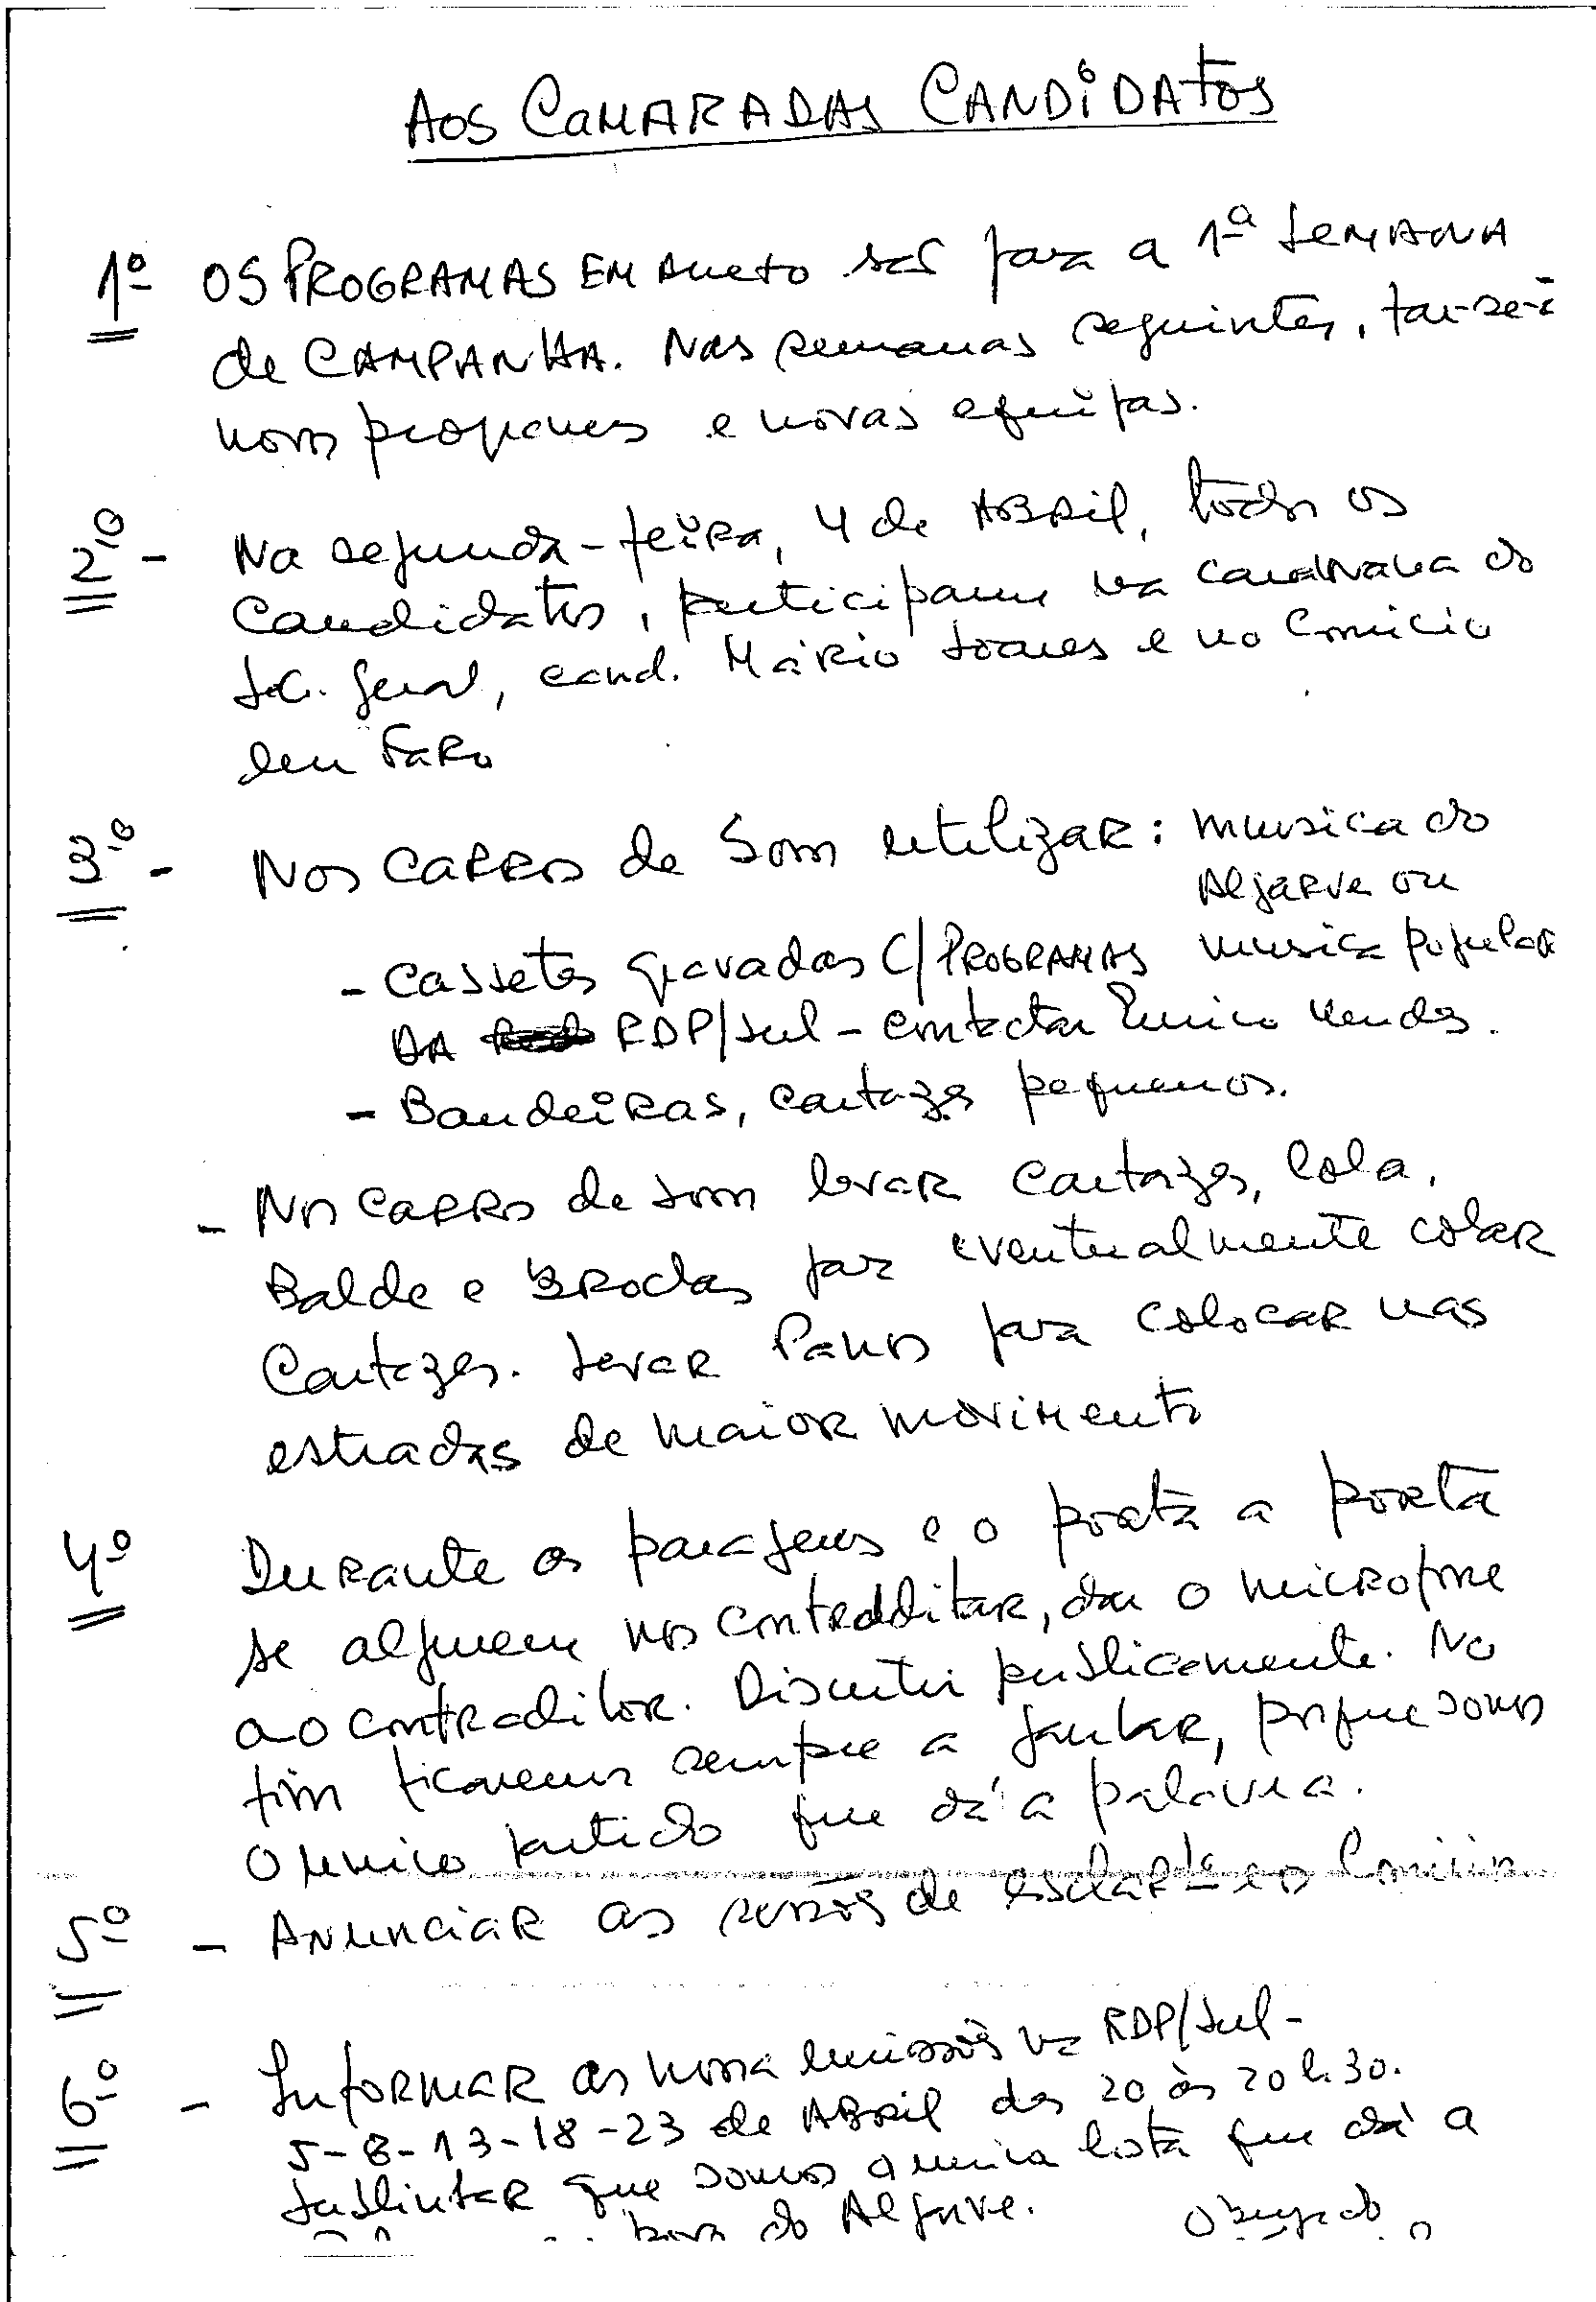 AOS CAMARADAS CANDIDATOS
1º OS PROGRAMAS EM ANEXO são para a 1ª SEMANA
de CAMPANHA. Nas semanas seguintes, far-se-á
novos programas e novas equipas.
2º - Na segunda-feira, 4 de ABRIL, todos os
Candidatos, participam na caravana do
Sec. Geral, cand. Mário Soares e no Comício
em Faro
3º - Nos CARROS de Som utilizar: musica do
Algarve ou
musica popular
- Cassetes gravadas C/PROGRAMAS
DA RDP/Sul - contactar Eurico Mendes.
- Bandeiras, cartazes pequenos.
- Nos CARROS de som levar Cartazes, Cola,
Balde e Brochas para eventualmente colar
Cartazes. Levar Panos para colocar nas
estradas de maior movimento
4º Durante as paragens e o porta a porta
se alguem nos contradditar, dar o microfone
ao contraditor. Discutir publicamente. No
fim ficaremos sempre a ganhar, porque somos
O unico partido que dá a palavra.
5º - Anunciar as sessões de esclartº e os Comícios
6º - Informar as nossa emissões na RDP/Sul -
5-8-13-18-23 de ABRIL das 20 às 20h.30.
Sublinhar que somos a unica lista que dá a
do Algarve. Obrigado